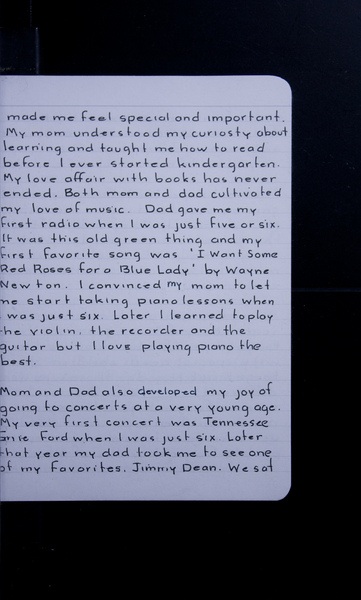 made me feel special and important.
My mom understood my curiosty about
learning and taught me how to read
before I ever started kindergarten.
My love affair with books has never
ended. Both mom and dad cultivated
my love of music. Dad gave me my
first radio when I was just five or six.
It was this old green thing and my
first favorite song was 'I Want Some
Red Roses for a Blue Lady' by Wayne
Newton. I convinced my mom to let
me start taking piano lessons when
I was just six. Later I learned to play
the violin, the recorder and the
guitar but I love playing piano the
best.
Mom and Dad also developed my joy of
going to concerts at a very young age.
My very first concert was Tennessee
Ernie Ford when I was just six. Later
that year my dad took me to see one
of my favorites, Jimmy Dean. We sat